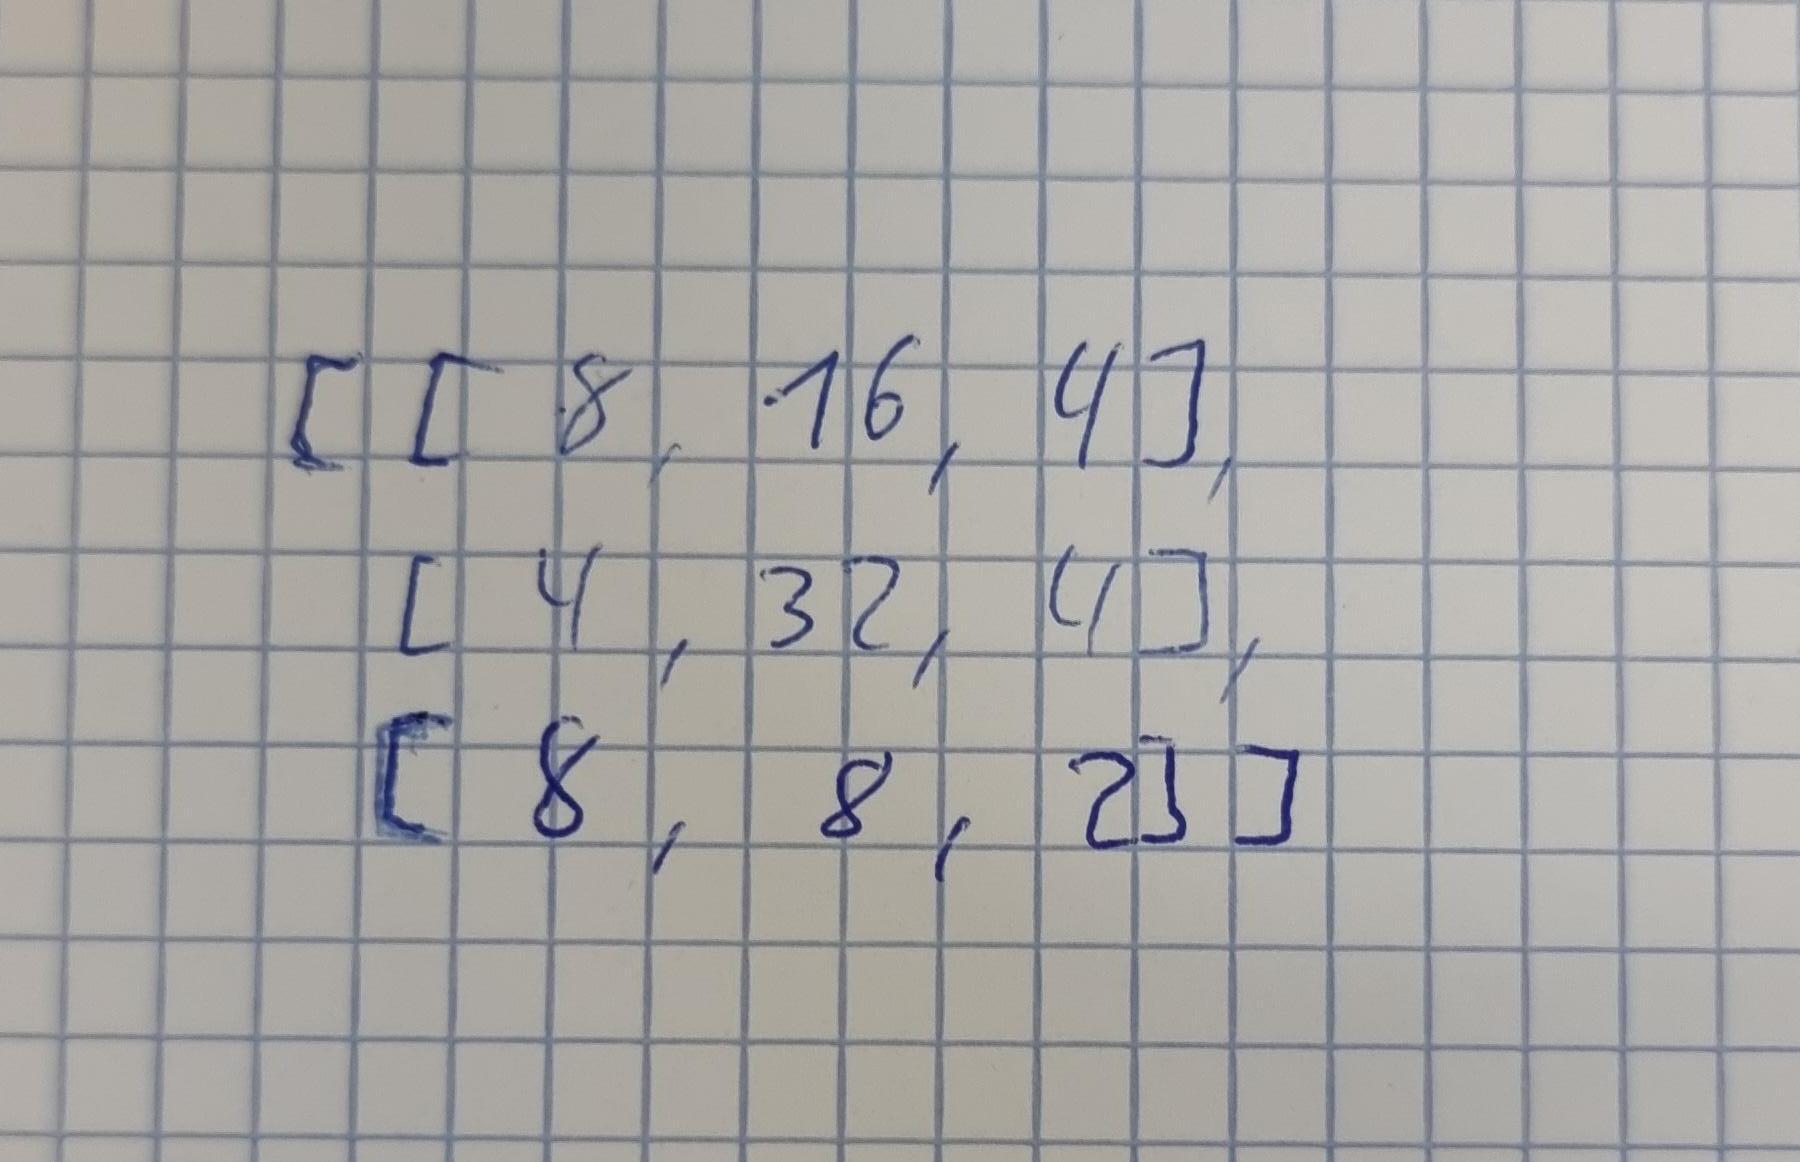 [[8, 16, 4],
[4, 32, 4],
[8, 8, 2]]